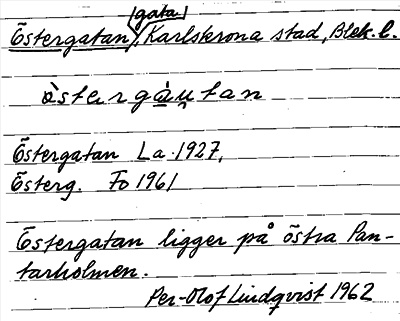 Östergatan, (gata) Karlskrona stad, Blek. l.
östergàu̯tan
Östergatan La 1927,
Österg. Fo 1961
Östergatan ligger på östra Pan-
tarholmen.
Per-Olof Lindqvist 1962